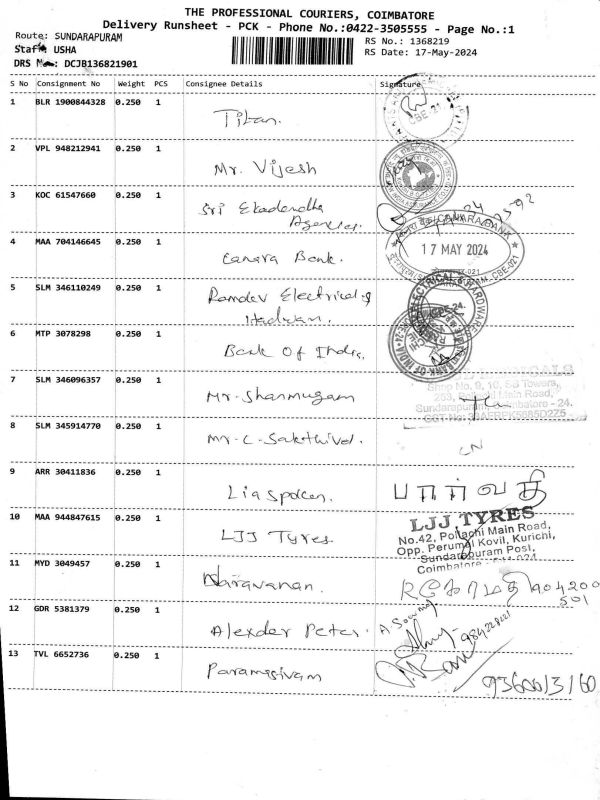 THE PROFESSIONAL COURIERS, COIMBATORE
Delivery Runsheet - PCK - Phone No.:0422-3505555 - Page No.:1
Route: SUNDARAPURAM
RS No.: 1368219
Staff: USHA
RS Date: 17-May-2024
DRS No.: DCJB136821901
S No Consignment No Weight PCS Consignee Details Signature
1 BLR 1900844328 0.250 1 Titan.
CBE-21
2 VPL 948212941 0.250 1 Mr. Vijesh
3 KOC 61547660 0.250 1 Sri Ekadandha
Agencies.
CANARA BANK
4 MAA 704146645 0.250 1 Canara Bank.
17 MAY 2024
5 SLM 346110249 0.250 1 Ramdev Electrical &
6 MTP 3078298 0.250 1 Bank Of India.
BANK OF INDIA
7 SLM 346096357 0.250 1 Mr. Shanmugam
Shop No. 9, 10, SB Towers,
Main Road,
Sundarapuram, Coimbatore - 24.
8 SLM 345914770 0.250 1 Mr. C. Sakthivel.
9 ARR 30411836 0.250 1
பார்வதி
10 MAA 944847615 0.250 1 LJJ Tyres.
LJJ TYRES
No.42, Pollachi Main Road,
Opp. Perumal Kovil, Kurichi,
Sundarapuram Post,
Coimbatore
11 MYD 3049457 0.250 1 Naravanan.
904200
501
12 GDR 5381379 0.250 1 Alexder Peter.
13 TVL 6652736 0.250 1 Paramasivam
9360013160